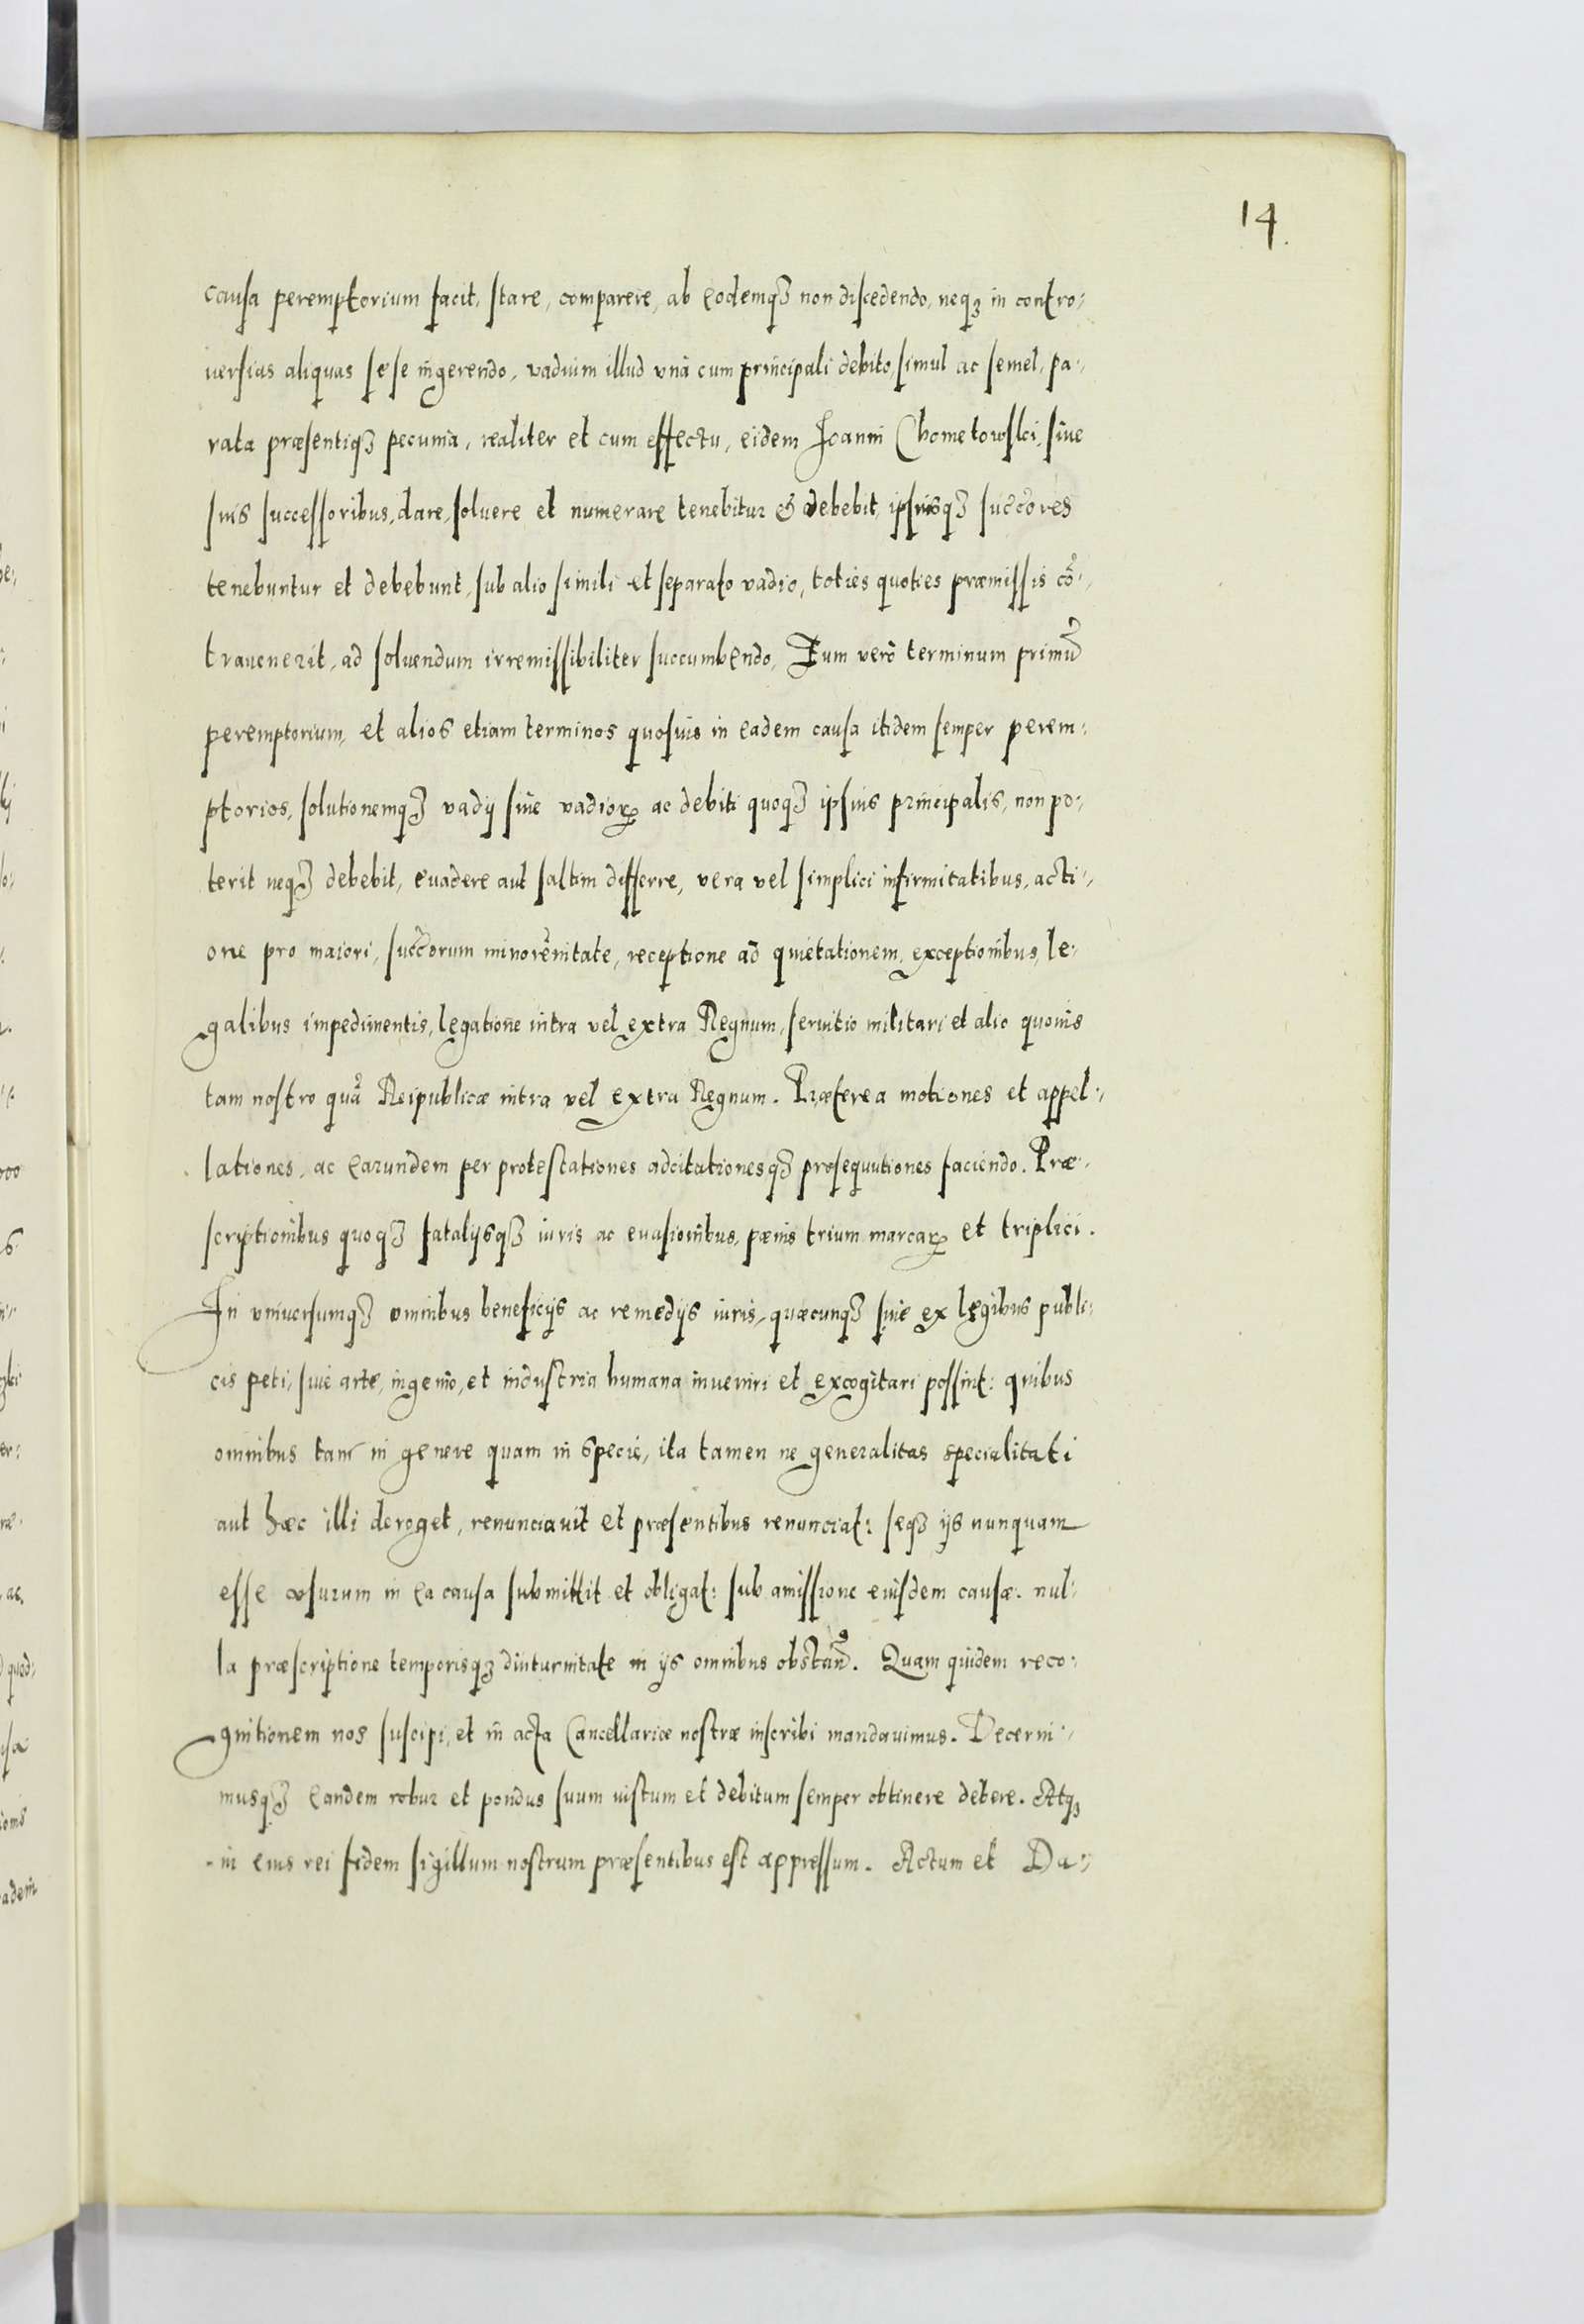 14.
causa peremptorium facit, stare, comparere, ab eodemqꝫ non discedendo, neqꝫ in contro-
uersias aliquas sese ingerendo, vadium illud vnà cum principali debito, simul ac semel, pa-
rata præsentiqꝫ pecunia, realiter et cum effectu, eidem Joanni Chometowski, siue
suis successoribus, dare, soluere et numerare tenebitur & debebit, ipsiusqꝫ succ̃ores
tenebuntur et debebunt, sub alio simili et separato vadio, toties quoties præmissis cõ-
trauenerit, ad soluendum irremissibiliter succumbendo, Tum verò terminum primũ
peremptorium, et alios etiam terminos quosuis in eadem causa itidem semper perem-
ptorios, solutionemqꝫ vadij siue vadioꝝ ac debiti quoqꝫ ipsius principalis, non po-
terit neqꝫ debebit, euadere aut saltim differre, vera vel simplici infirmitatibus, acti-
one pro maiori, succ̃orum minorẽnitate, receptione ad quietationem, exceptionibus, le-
galibus impedimentis, legatione intra vel extra Regnum, seruitio militari et alio quouis
tam nostro quã Reipublicæ intra vel extra Regnum. Præterea motiones et appel-
lationes, ac earundem per protestationes adcitationesqꝫ prosequutiones faciendo. Præ-
scriptionibus quoqꝫ fatalijsqꝫ iuris ac euasionibus, pænis trium marcaꝝ et triplici.
In vniuersumqꝫ omnibus beneficijs ac remedijs iuris, quæcunqꝫ siue ex legibus publi-
cis peti, siue arte, ingenio, et industria humana inueniri et excogitari possint: quibus
omnibus tam in genere quam in specie, ita tamen ne generalitas specialitati
aut hæc illi deroget, renunciauit et præsentibus renunciat: seqꝫ ijs nunquam
esse vsurum in ea causa submittit et obligat: sub amissione eiusdem causæ. nul-
la præscriptione temporisqꝫ diuturnitate in ijs omnibus obstañ. Quam quidem reco-
gnitionem nos suscipi, et in acta Cancellariæ nostræ inscribi mandauimus. Decerni-
musqꝫ eandem robur et pondus suum iustum et debitum semper obtinere debere. Atqꝫ
in eius rei fidem sigillum nostrum præsentibus est appressum. Actum et Da-